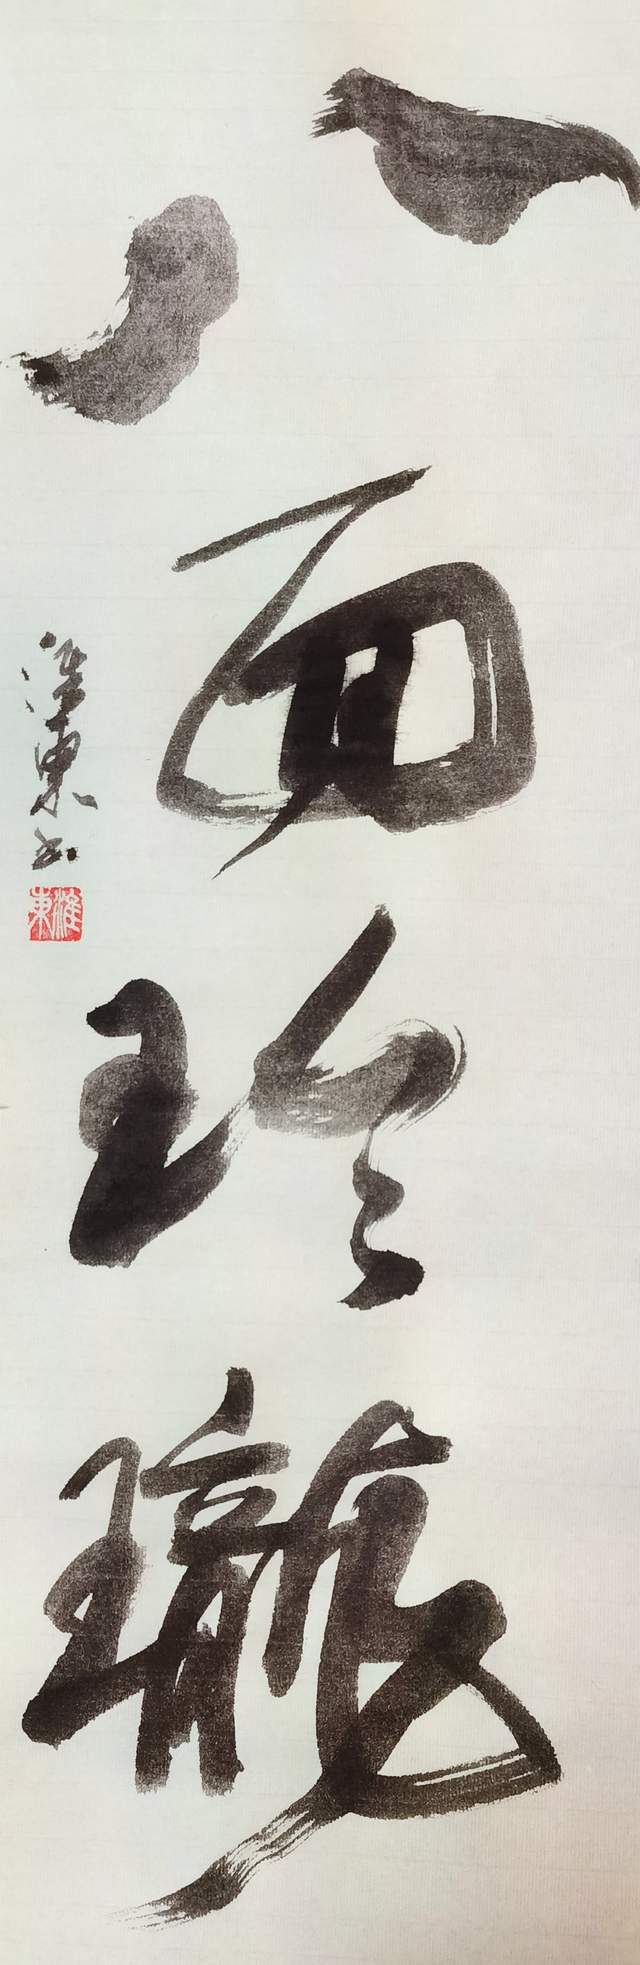 八面玲瓏
淮東书
淮東